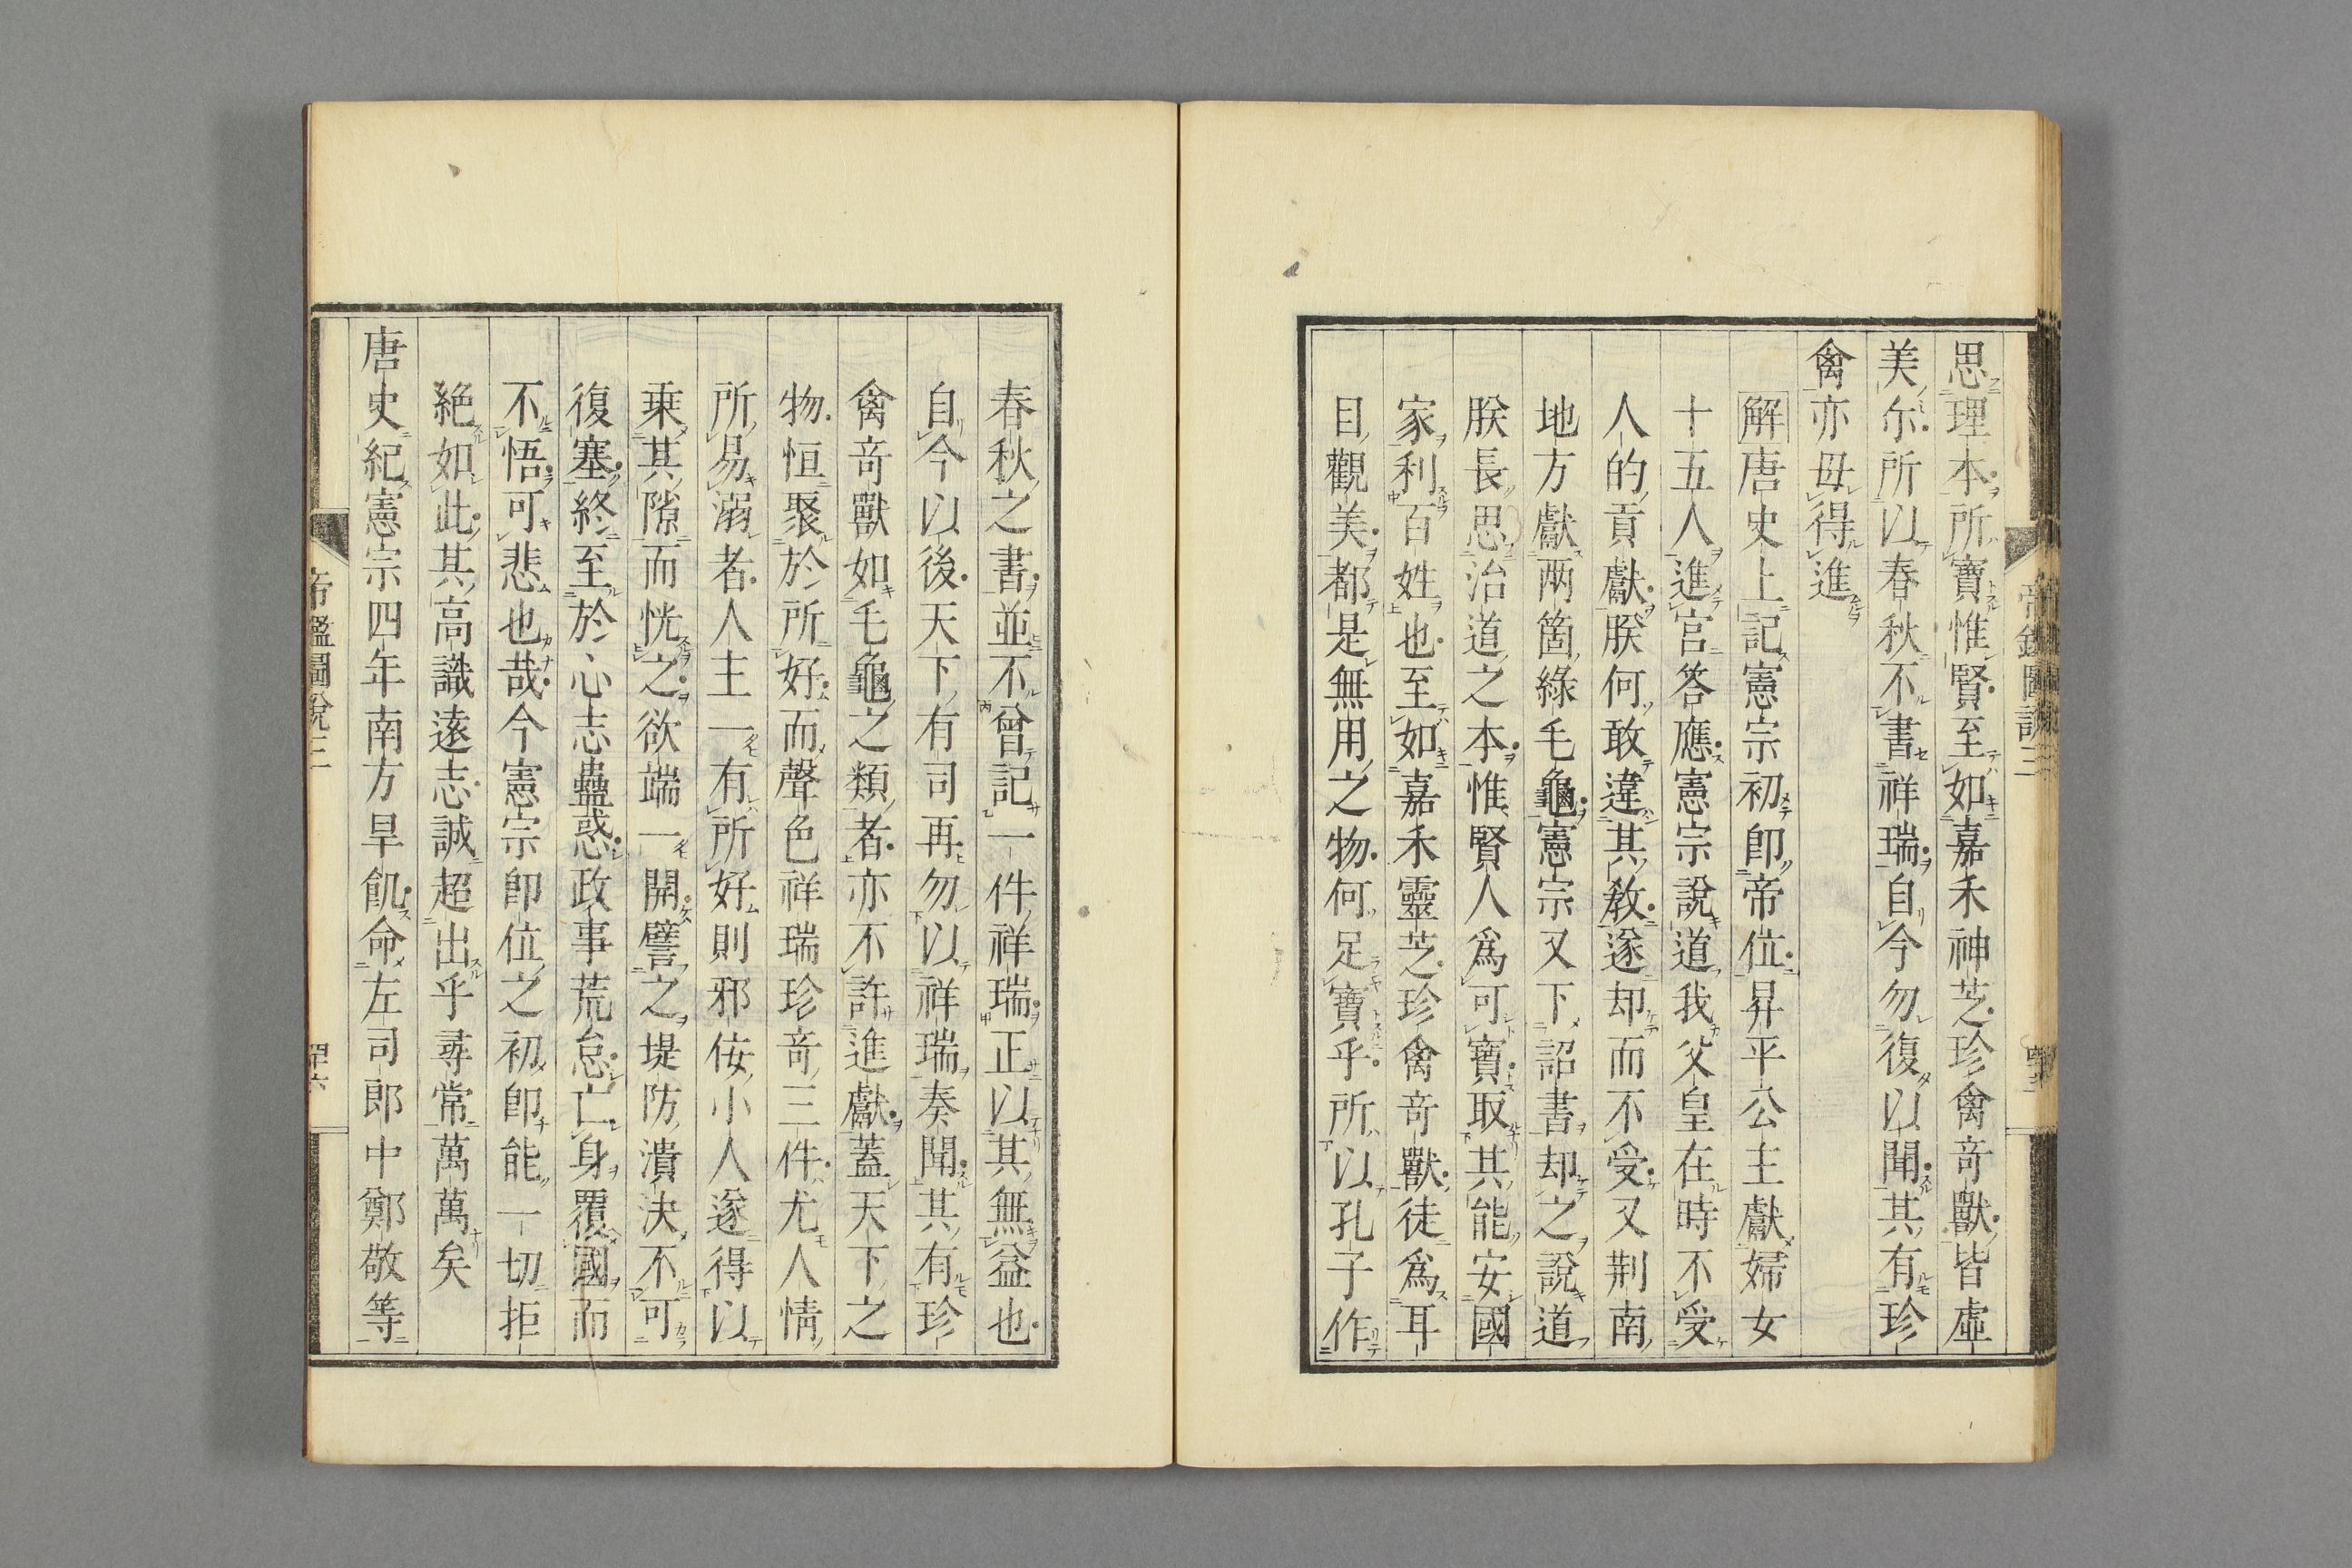 思理本所寶惟賢至如嘉禾神芝珍禽竒獸皆虛
美尓所以春秋不書祥瑞自今勿復以聞其有珍
禽亦毋得進
解唐史上記憲宗初卽帝位昇平公主獻婦女
十五人進宮答應憲宗說道我父皇在時不受
人的貢獻朕何敢違其敎遂却而不受又荆南
地方獻两箇綠毛龜憲宗又下詔書却之說道
朕長思治道之本惟賢人爲可寶取其能安國
家利百姓也至如嘉禾靈芝珍禽竒獸徒爲耳
目觀美都是無用之物何足寶乎所以孔子作
春秋之書並不曾記一件祥瑞正以其無益也
自今以後天下有司再勿以祥瑞奏聞其有珍
禽竒獸如毛龜之類者亦不許進獻蓋天下之
物恒聚於所好而聲色祥瑞珍竒三件尤人情
所易溺者人主一有所好則邪佞小人遂得以
乗其隙而恍之欲端一開譬之堤防潰决不可
復塞終至於心志蠱惑政事荒怠亡身覆國而
不悟可悲也哉今憲宗卽位之初卽能一切拒
絶如此其高識遠志誠超出乎尋常萬萬矣
唐史紀憲宗四年南方旱飢命左司郎中鄭敬等
帝鑑圖說三